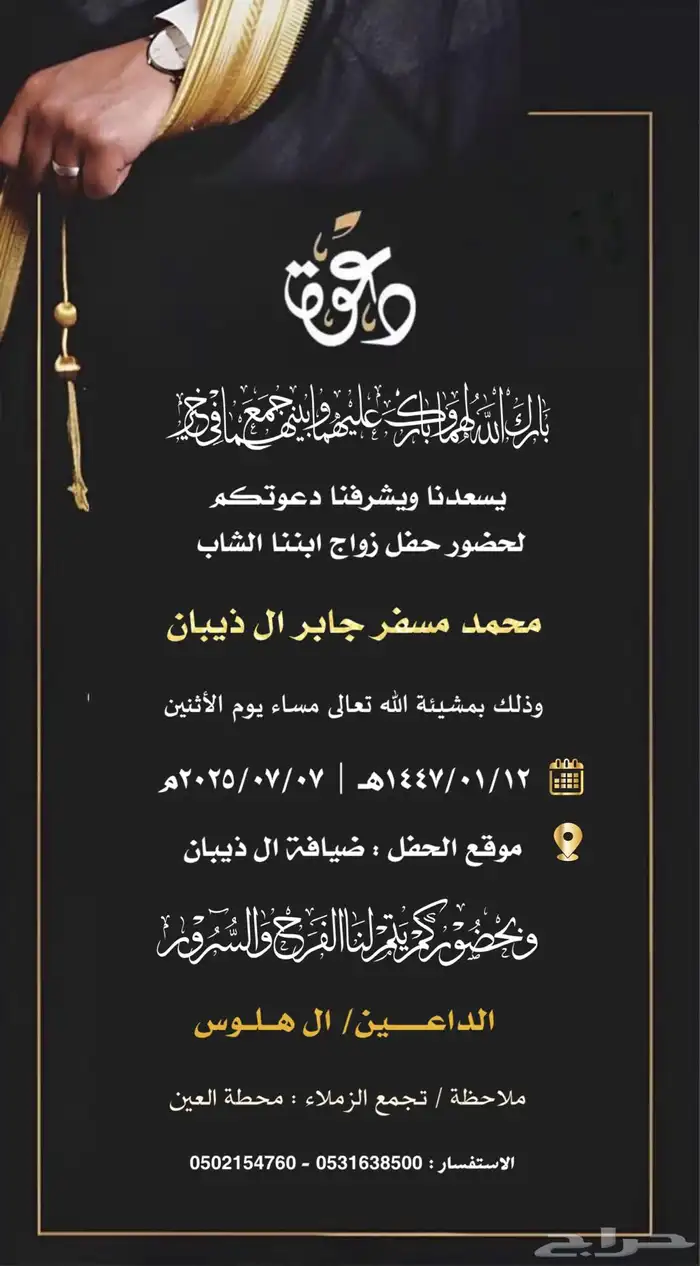 دعوة
بارك الله لهما وبارك عليهما وجمع بينهما في خير
يسعدنا ويشرفنا دعوتكم
لحضور حفل زواج ابننا الشاب
محمد مسفر جابر ال ذيبان
وذلك بمشيئة الله تعالى مساء يوم الأثنين
١٤٤٧/٠١/١٢هـ | ٢٠٢٥/٠٧/٠٧م
موقع الحفل : ضيافة ال ذيبان
وبحضوركم يتم لنا الفرح والسرور
الداعـــين/ ال هـلـوس
ملاحظة / تجمع الزملاء : محطة العين
الاستفسار : 0531638500 - 0502154760
حراج